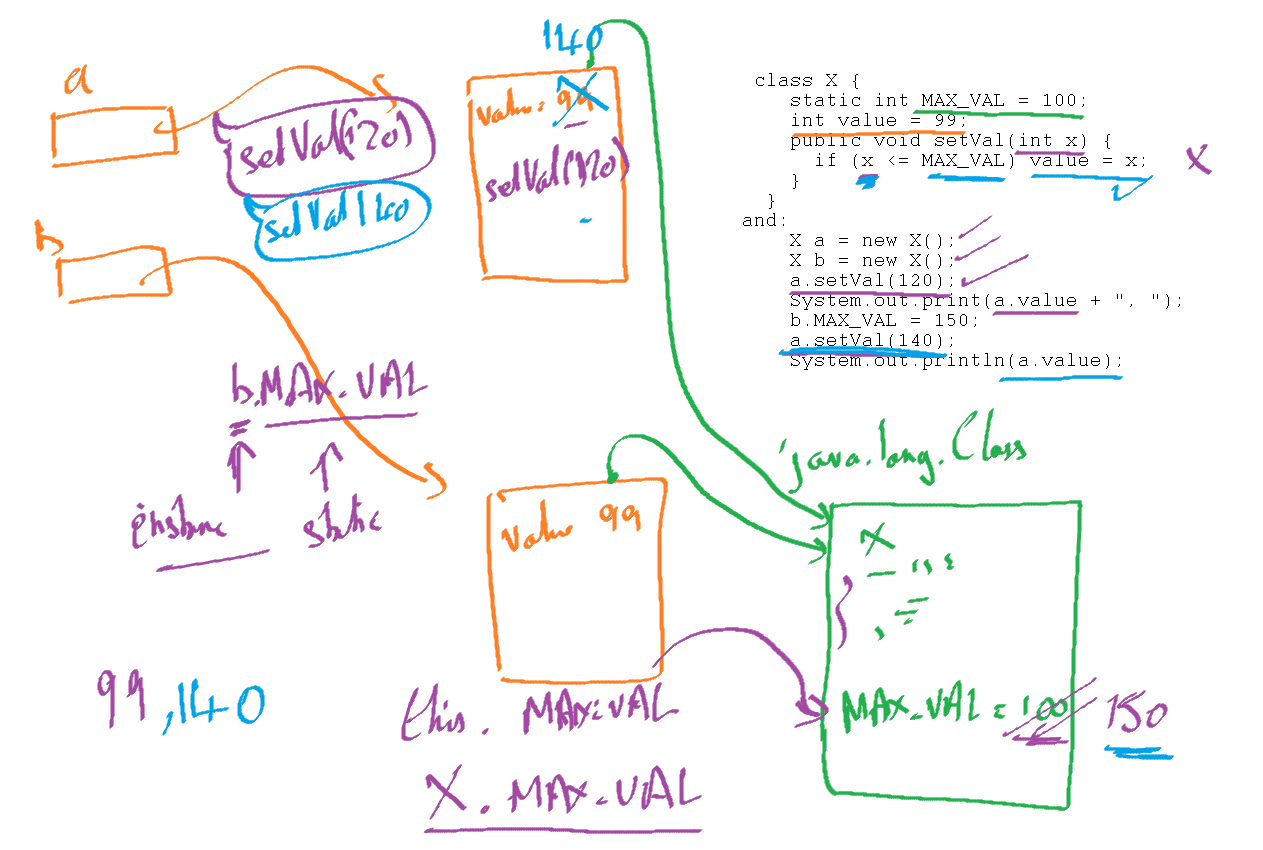 140
a
value: 99
setVal(120)
setVal(120)
setVal 140
b
class X {
static int MAX_VAL = 100;
int value = 99;
public void setVal(int x) {
if (x <= MAX_VAL) value = x;
X
}
}
and:
X a = new X();
X b = new X();
a.setVal(120);
System.out.print(a.value + ", ");
b.MAX_VAL = 150;
a.setVal(140);
System.out.println(a.value);
b.MAX_VAL
static
java.lang.Class
value 99
X
MAX_VAL = 100 150
99,140
this. MAX_VAL
X. MAX_VAL